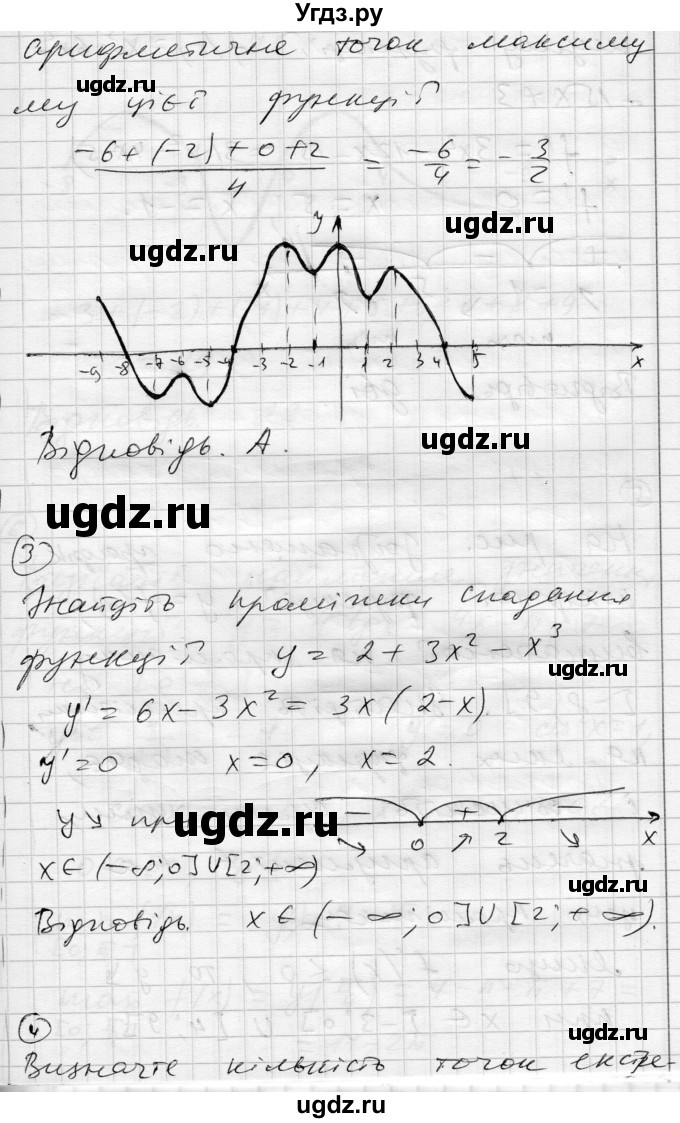 Угдз.ру
арифметичне точок максиму
му цієї функції
ugdz.ru
(-6+(-2)+0+2)/4 = -6/4 = -3/2.
ugdz.ru
ugdz.ru
y
-9 -8 -7 -6 -5 -4 -3 -2 -1 1 2 3 4 5 x
ugdz.ru
Відповідь. А.
ugdz.ru
3
Знайдіть проміжки спадання
функції y = 2 + 3x² - x³
ugdz.ru
y' = 6x - 3x² = 3x(2-x).
y' = 0 x = 0, x = 2.
ugdz.ru
y ↘ - + -
↘ 0 ↗ 2 ↘ x
x ∈ (-∞; 0] ∪ [2; +∞)
ugdz.ru
Відповідь. x ∈ (-∞; 0] ∪ [2; +∞).
4
ugdz.ru
Визначте кількість точок екстре-
ugdz.ru